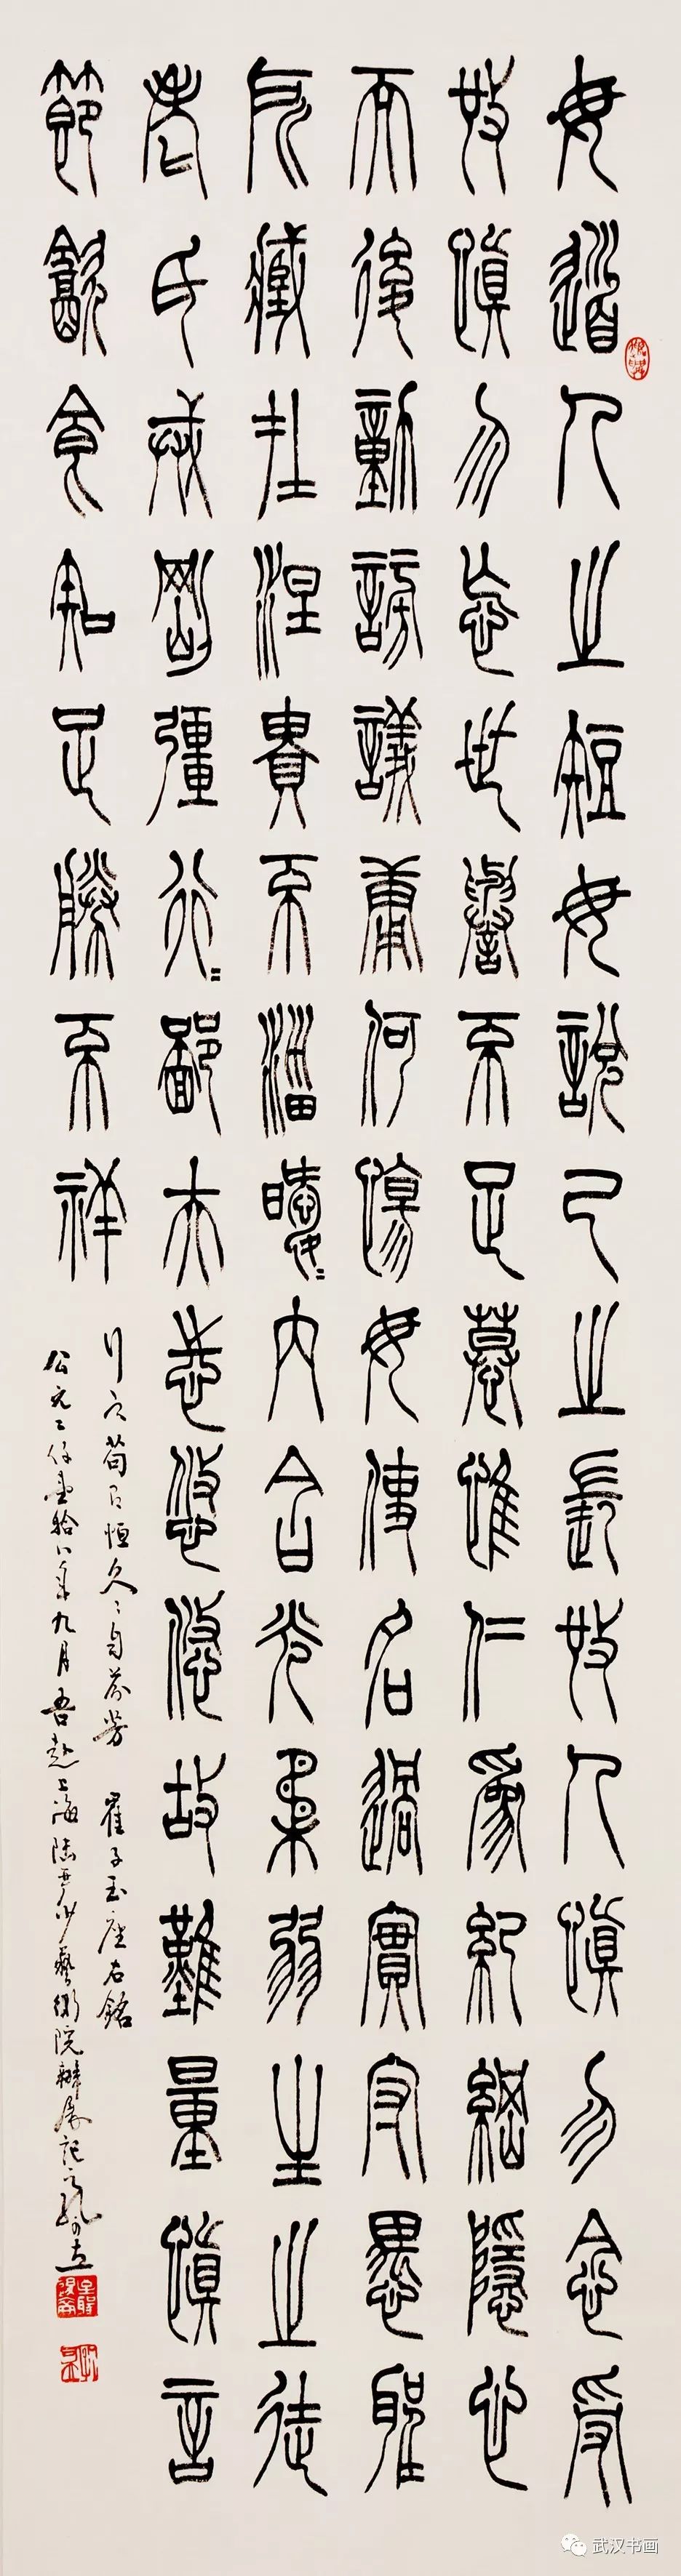 毋道人之短毋說己之長施人慎勿念受
施慎勿忘世譽不足慕惟仁爲紀綱隱心
而後動謗議庸何傷毋使名過實守愚聖
所臧在涅貴不淄曖〻內含光柔弱生之徒
老氏戒剛彊行〻鄙夫志悠悠故難量慎言
節飲食知足勝不祥
行之苟有恒久〻自芬芳 崔子玉座右銘
公元二仟壹拾八年九月吾赴上海陸亞藝術院辦展記之
武汉书画